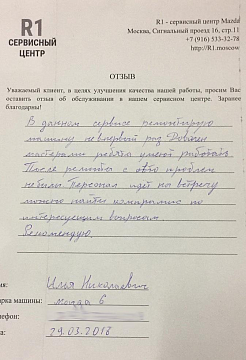 R1
СЕРВИСНЫЙ
ЦЕНТР
R1 - сервисный центр Mazda
Москва, Сигнальный проезд 16, стр. 11
+7 (916) 533-32-78
http://R1.moscow
ОТЗЫВ
Уважаемый клиент, в целях улучшения качества нашей работы, просим Вас
оставить отзыв об обслуживании в нашем сервисном центре. Заранее
благодарны!
В данном сервисе ремонтирую
машину не первый раз. Доволен
мастерами ребята умеют работать
После ремонта с авто проблем
не было. Персонал идет на встречу
можно найти компромис по
интересующим вопросам.
Рекомендую.
мя: Илья Николаевич
арка машины: мазда 6
лефон:
та: 29.03.2018